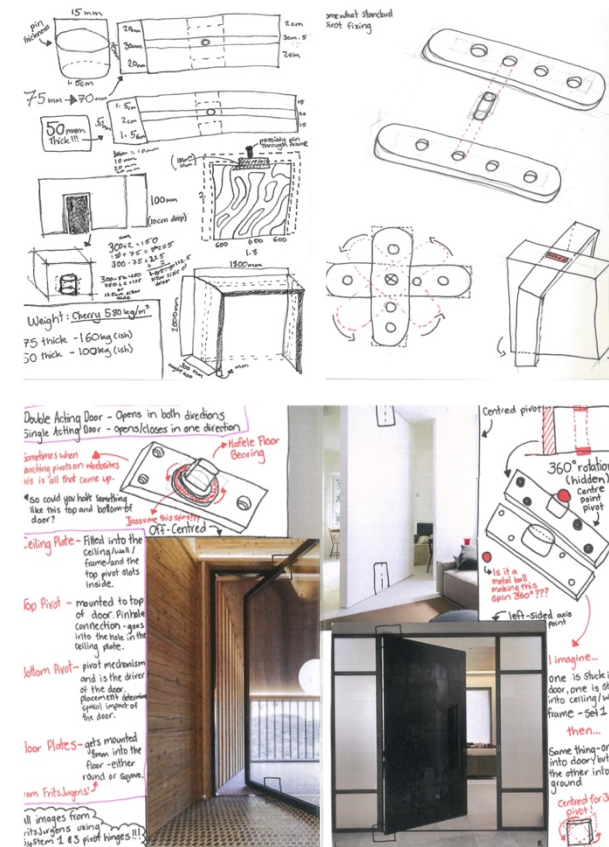 15mm
pin thickness
1.5cm
20mm
30mm
20mm
2cm
3cm.5
2cm
75mm → 70mm
50mm
Thick!!!
1.5cm
2cm
1.5cm
15
20
15
possibly pin
through frame
100mm
(10cm deep)
600 600 600
1.8
1800mm
2000mm
300 mm
Weight: Cherry 580kg/m³
75 thick - 160kg (ish)
50 thick - 100kg (ish)
somewhat standard
pivot fixing
Double Acting Door - Opens in both directions
Single Acting Door - opens/closes in one direction
Sometimes when
searching pivots on websites
this is all that came up.
*so could you have something
like this top and bottom of
door?
Hafele Floor
Bearing
I assume this spins???
Off-Centred
Ceiling Plate - Fitted into the
ceiling/wall/
frame and the
top pivot slots
inside.
Top Pivot - mounted to top
of door. Pinhole
connection - goes
into the hole in the
ceiling plate.
Bottom Pivot - pivot mechanism
and is the driver
of the door.
placement determines
symbol impact of
the door.
Floor Plates - gets mounted
8mm into the
floor - either
round or square.
From FritsJurgens!
All images from
FritsJurgens using
System 1 & 3 pivot hinges!!!
Centred pivot
360° rotation
(hidden)
Centre
point
pivot
Is it a
metal ball
making this
spin 360°???
left-sided axis
point
I imagine...
one is stuck i
door, one is st
into ceiling/w
frame - set 1
then...
Same thing - on
into door, but
the other into
ground
Centred for 3
pivot